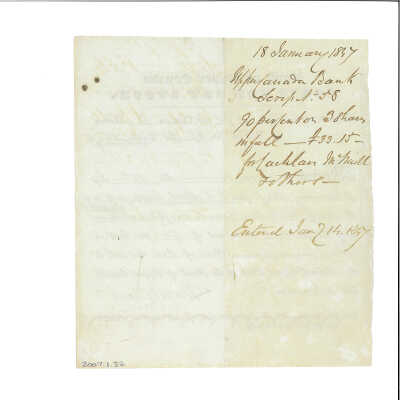 18 January 1837
Upper Canada Bank
Scrip No. 58
90 per cent on 3 Shares
in full — £33.15 —
for Lachlan McNeill
& others —
Entered Jany 14. 1837
2007.1.32